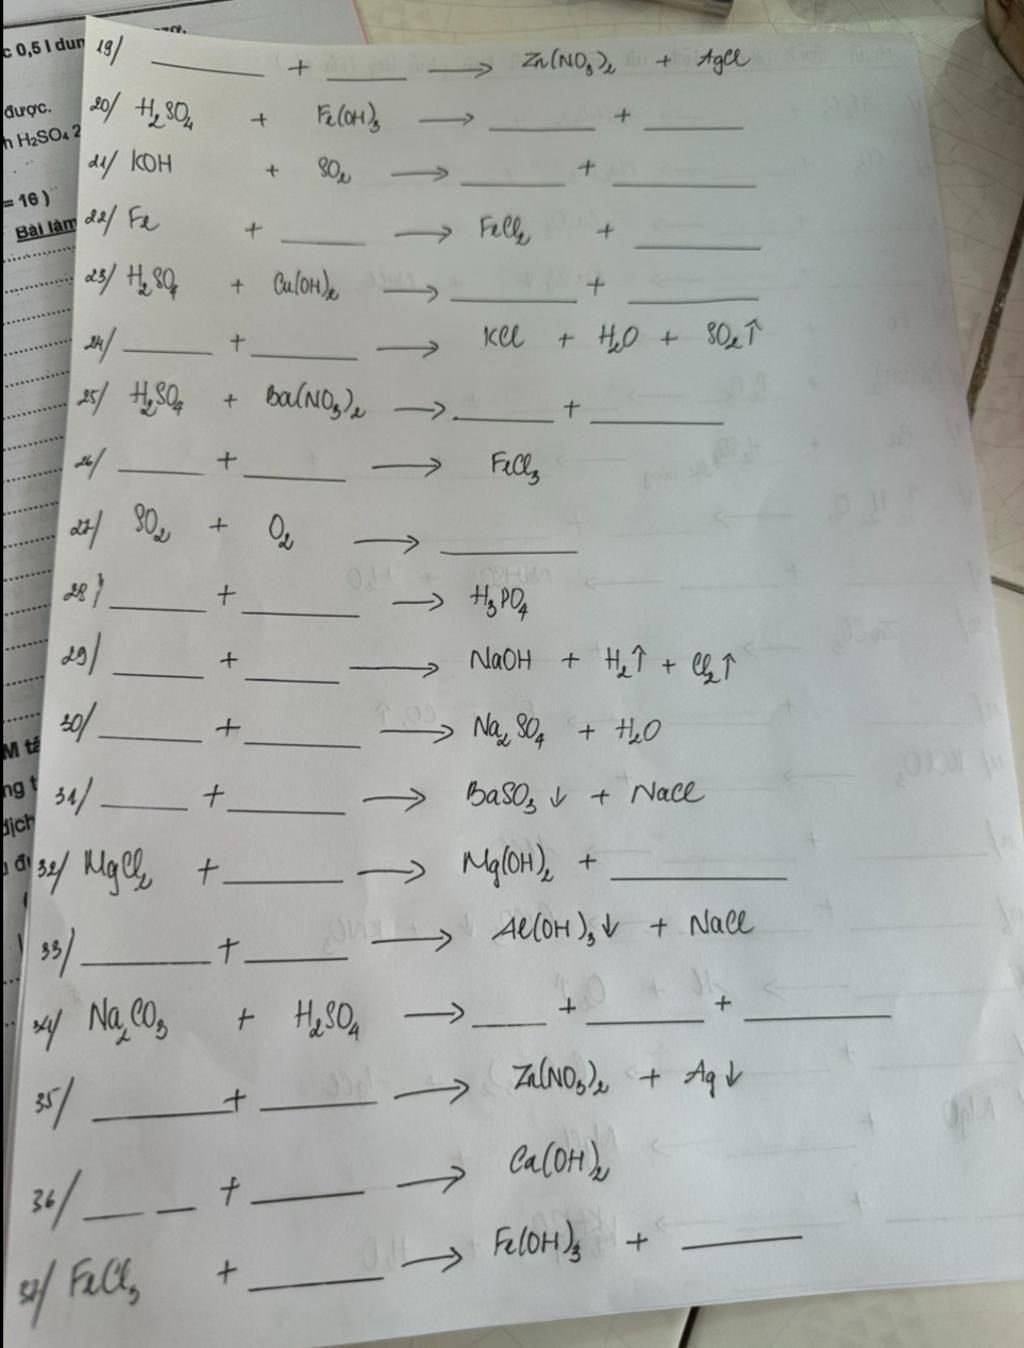 c 0,5 l dun
được.
h H₂SO₄ 2
= 16 )
Bài làm
M tá
ng t
dịch
19/ ______ + ______ → Zn(NO₃)₂ + AgCl
20/ H₂SO₄ + Fe(OH)₃ → ______ + ______
21/ KOH + SO₂ → ______ + ______
22/ Fe + ______ → FeCl₂ + ______
23/ H₂SO₄ + Cu(OH)₂ → ______ + ______
24/ ______ + ______ → KCl + H₂O + SO₂↑
25/ H₂SO₄ + Ba(NO₃)₂ → ______ + ______
26/ ______ + ______ → FeCl₃
27/ SO₂ + O₂ → ______
28/ ______ + ______ → H₃PO₄
29/ ______ + ______ → NaOH + H₂↑ + Cl₂↑
30/ ______ + ______ → Na₂SO₄ + H₂O
31/ ______ + ______ → BaSO₃↓ + NaCl
32/ MgCl₂ + ______ → Mg(OH)₂ + ______
33/ ______ + ______ → Al(OH)₃↓ + NaCl
34/ Na₂CO₃ + H₂SO₄ → ______ + ______ + ______
35/ ______ + ______ → Zn(NO₃)₂ + Ag↓
36/ ___ __ + ______ → Ca(OH)₂
37/ FeCl₃ + ______ → Fe(OH)₃ + ______